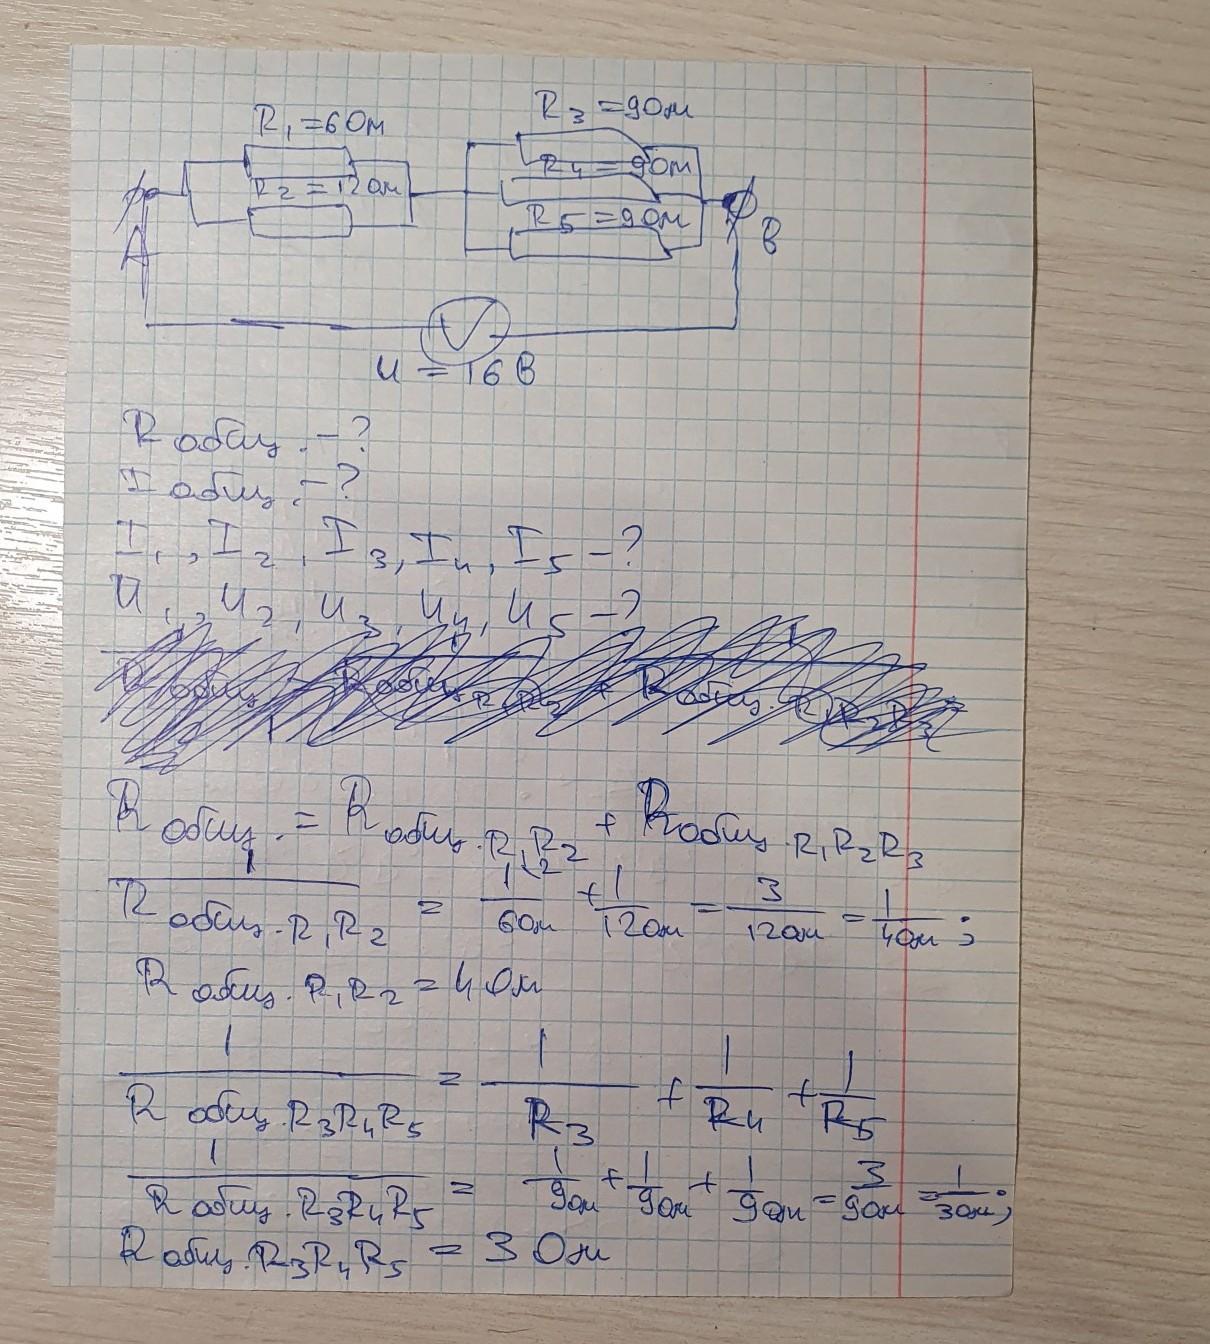 R₃ = 9 Ом
R₁ = 6 Ом
R₄ = 9 Ом
R₂ = 12 Ом
R₅ = 9 Ом
A
B
V
U = 16 В
R общ. – ?
I общ. – ?
I₁, I₂, I₃, I₄, I₅ – ?
U₁, U₂, U₃, U₄, U₅ – ?
R общ. = R общ. R₁R₂ + R общ. R₁R₂R₃
1/R общ. R₁R₂ = 1/6 Ом + 1/12 Ом = 3/12 Ом = 1/4 Ом;
R общ. R₁R₂ = 4 Ом
1/R общ. R₃R₄R₅ = 1/R₃ + 1/R₄ + 1/R₅
1/R общ. R₃R₄R₅ = 1/9 Ом + 1/9 Ом + 1/9 Ом = 3/9 Ом = 1/3 Ом;
R общ. R₃R₄R₅ = 3 Ом